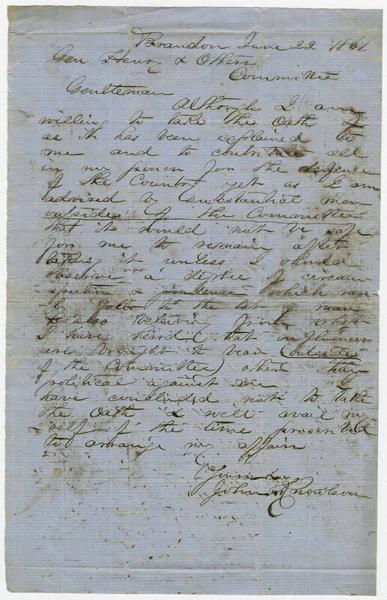 Brandon June 22 1861
Gen Henry & Others
Committee
Gentlemen
Although I am
willing to take the Oath
as it has been explained to
me and to contribute all
in my power for the defence
of the Country yet as I am
advised by Substantial men
outside of the Committee
that it would not be safe
for me to remain after
taking it unless I should
exercise a degree of circum
spection &
to the lot of man
& also
I have heard that influences
are brought to bear (outside
of the Committee) other than
political against me I
have concluded not to take
the Oath & will avail my
self of the time presented
to arrange my affairs
Yours
John